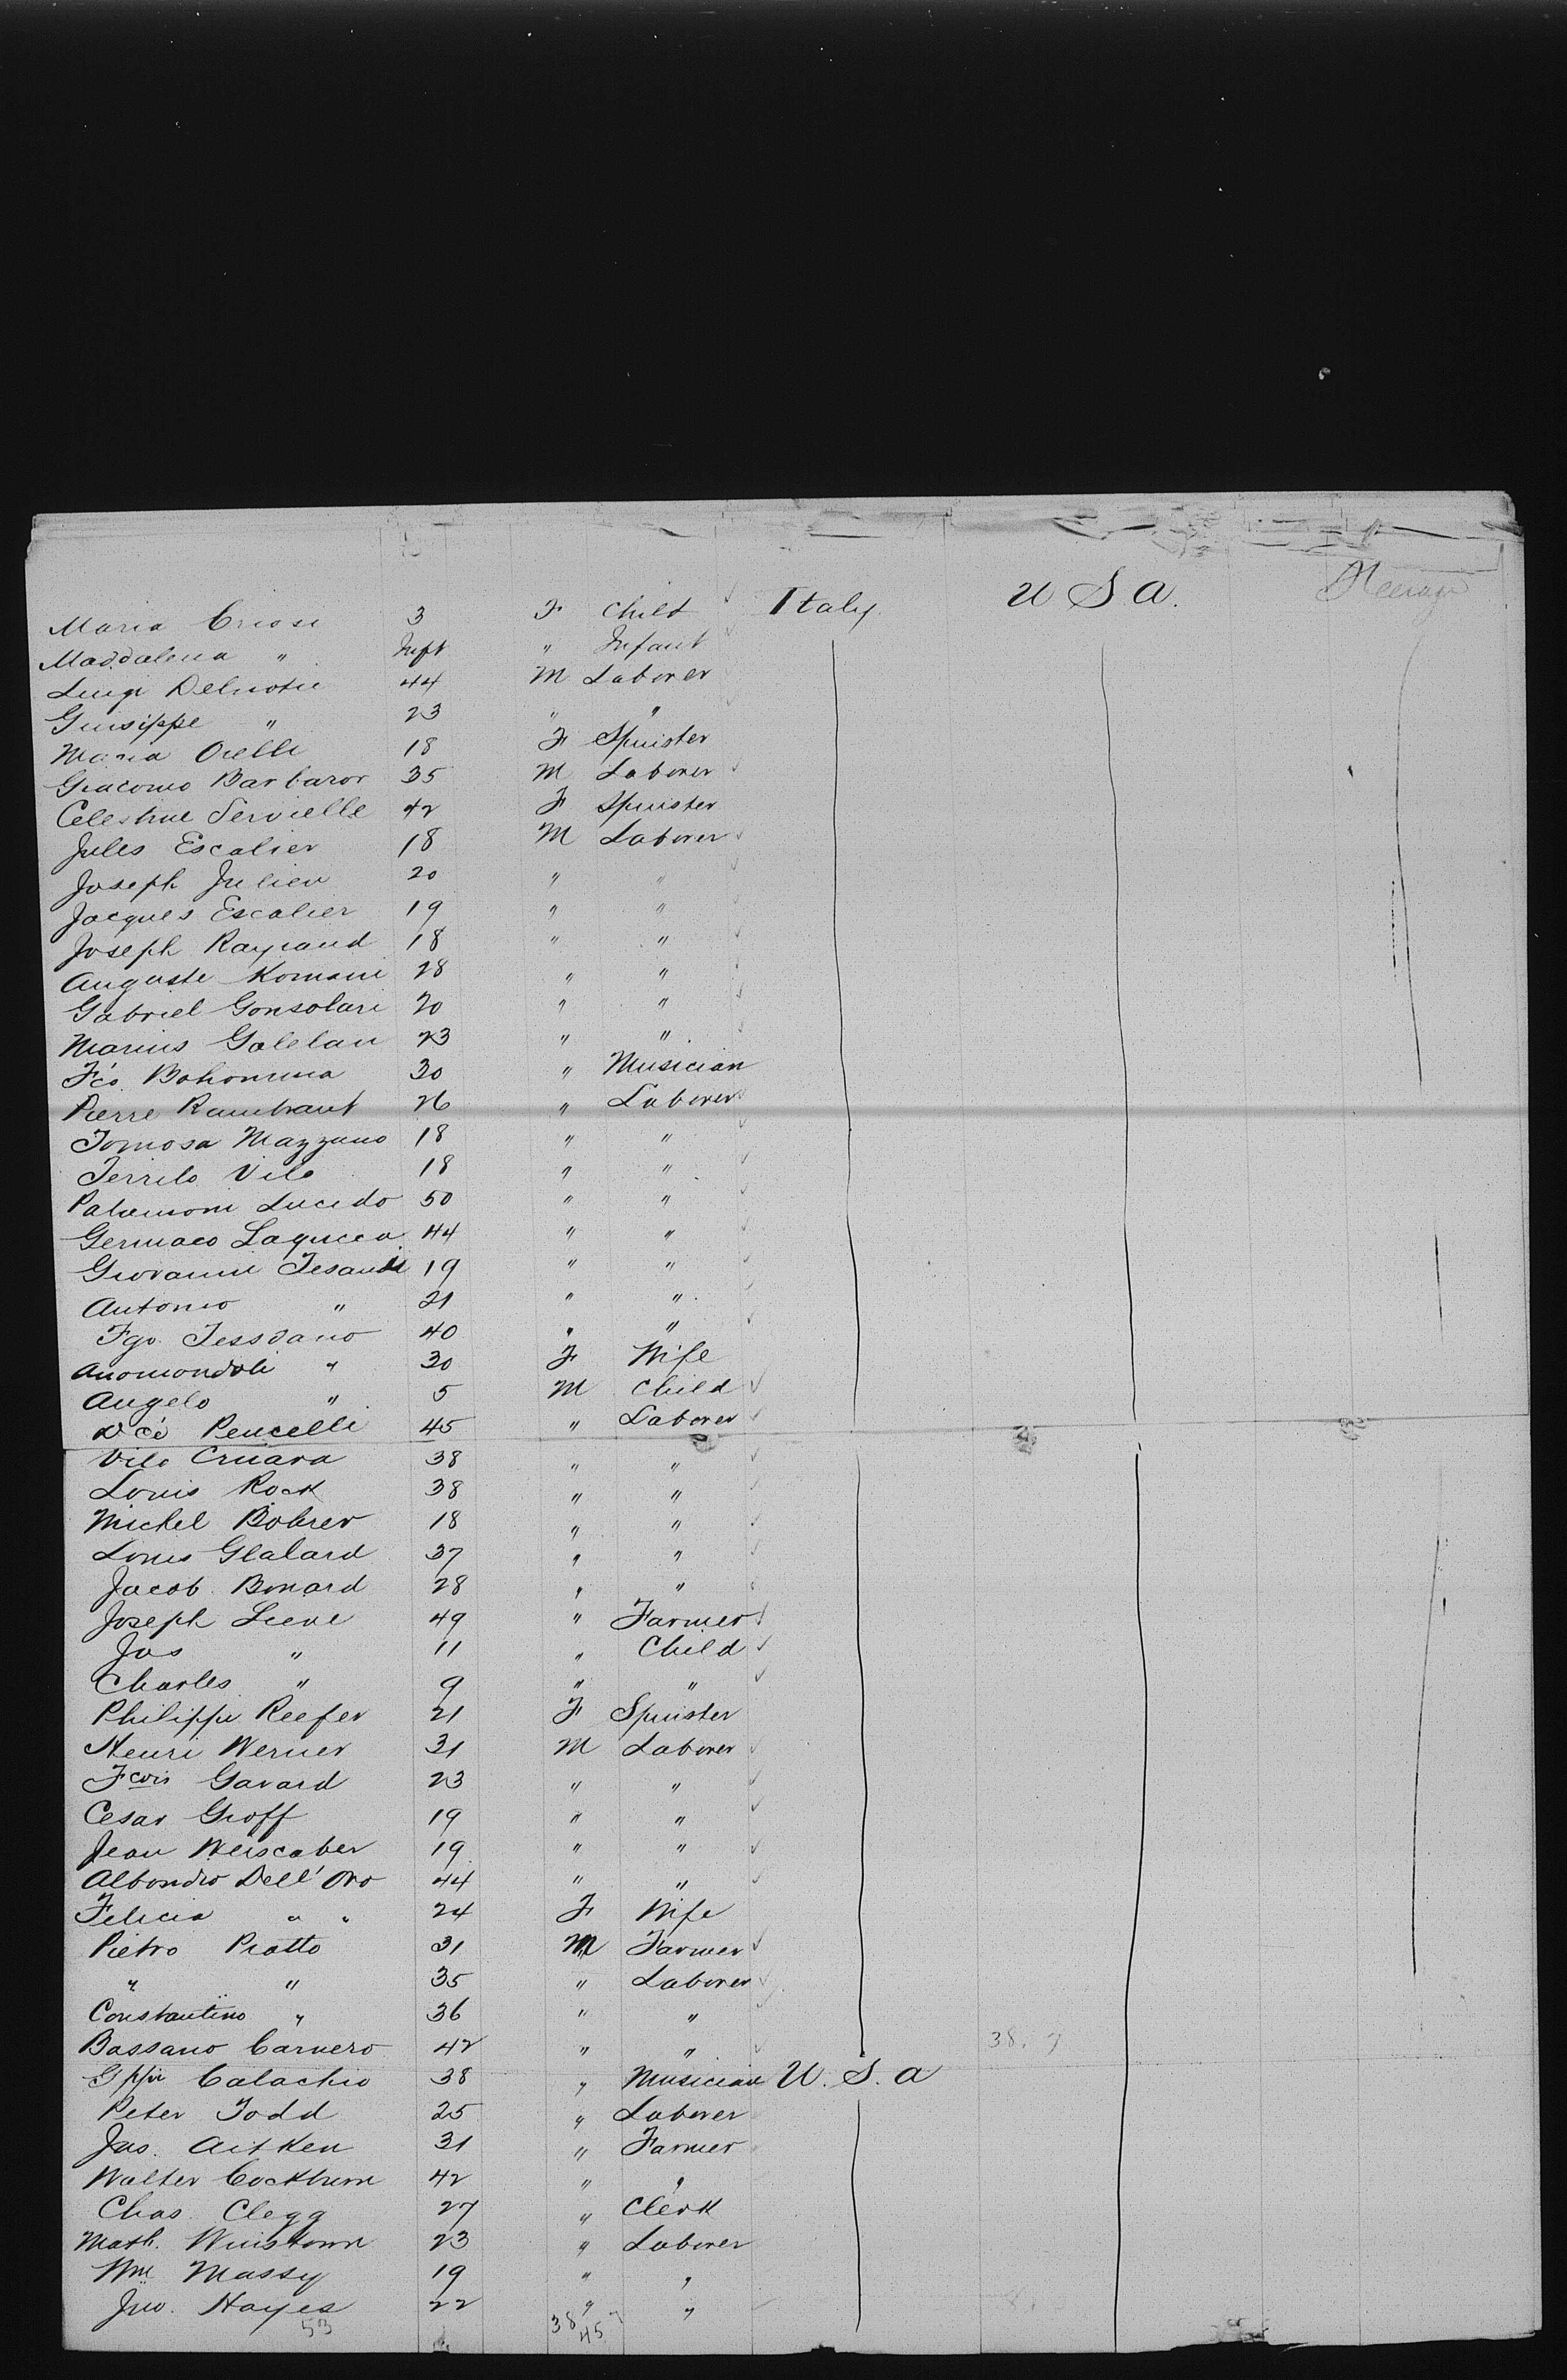 Maria Criosi 3 F Child Italy U S A. Steerage
Maddalena " Inft " Infant
Luigi Delnotu 44 M Laborer
Giusippe " 23 " "
Maria Orelli 18 F Spinster
Giacomo Barbaror 35 M Laborer
Celestine Servielle 42 F Spinster
Jules Escalier 18 M Laborer
Joseph Julien 20 " "
Jacques Escalier 19 " "
Joseph Raynaud 18 " "
Auguste Romani 28 " "
Gabriel Gonsolari 20 " "
Marius Galelan 23 " "
F'co. Bohomma 30 " Musician
Pierre Rambaut 26 " Laborer
Tomosa Mazzano 18 " "
Terrilo Vilo 18 " "
Palamoni Lucido 50 " "
Germaco Laqucca 44 " "
Giovanni 19 " "
Antonio " 21 " "
Fgo. Tessdano 40 " "
Anomondoli " 30 F Wife
Angelo " 5 M Child
Pencelli 45 " Laborer
Vilo Cruara 38 " "
Louis Rock 38 " "
Michel Bohrer 18 " "
Louis Glalard 37 " "
Jacob Bonard 28 " "
Joseph Liene 49 " Farmer
Jos " 11 " Child
Charles " 9 " "
Philippi Reefer 21 F Spinster
Henri Werner 31 M Laborer
Fcois Gavard 23 " "
Cesar Groff 19 " "
Jean Weiscaber 19 " "
Albondro Dell' Oro 44 " "
Felicia " " 24 F Wife
Pietro Piatto 31 M Farmer
" " 35 " Laborer
Constantino " 36 " "
Bassano Carnero 42 " " 38.
Gppi Calachio 38 " Musician U. S. A
Peter Todd 25 " Laborer
Jas. Aitken 31 " Farmer
Walter Cockburn 42 " "
Chas. Clegg 27 " Clerk
Math. Winstown 23 " Laborer
Wm Massy 19 " "
Jno. Hayes 22 " "
53 38 45